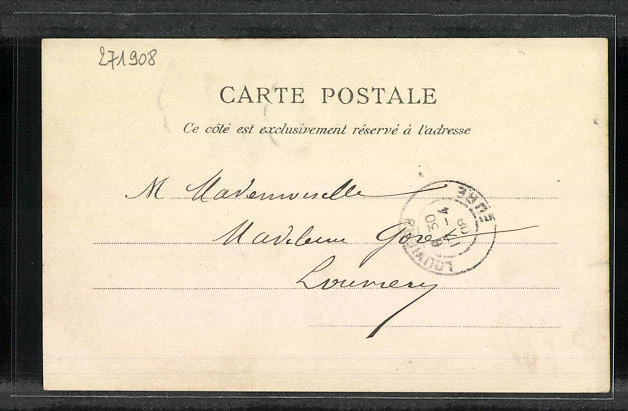 271908
CARTE POSTALE
Ce côté est exclusivement réservé à l'adresse
M Mademoiselle
Madeleine
Louviers
LOUVIERS
EURE